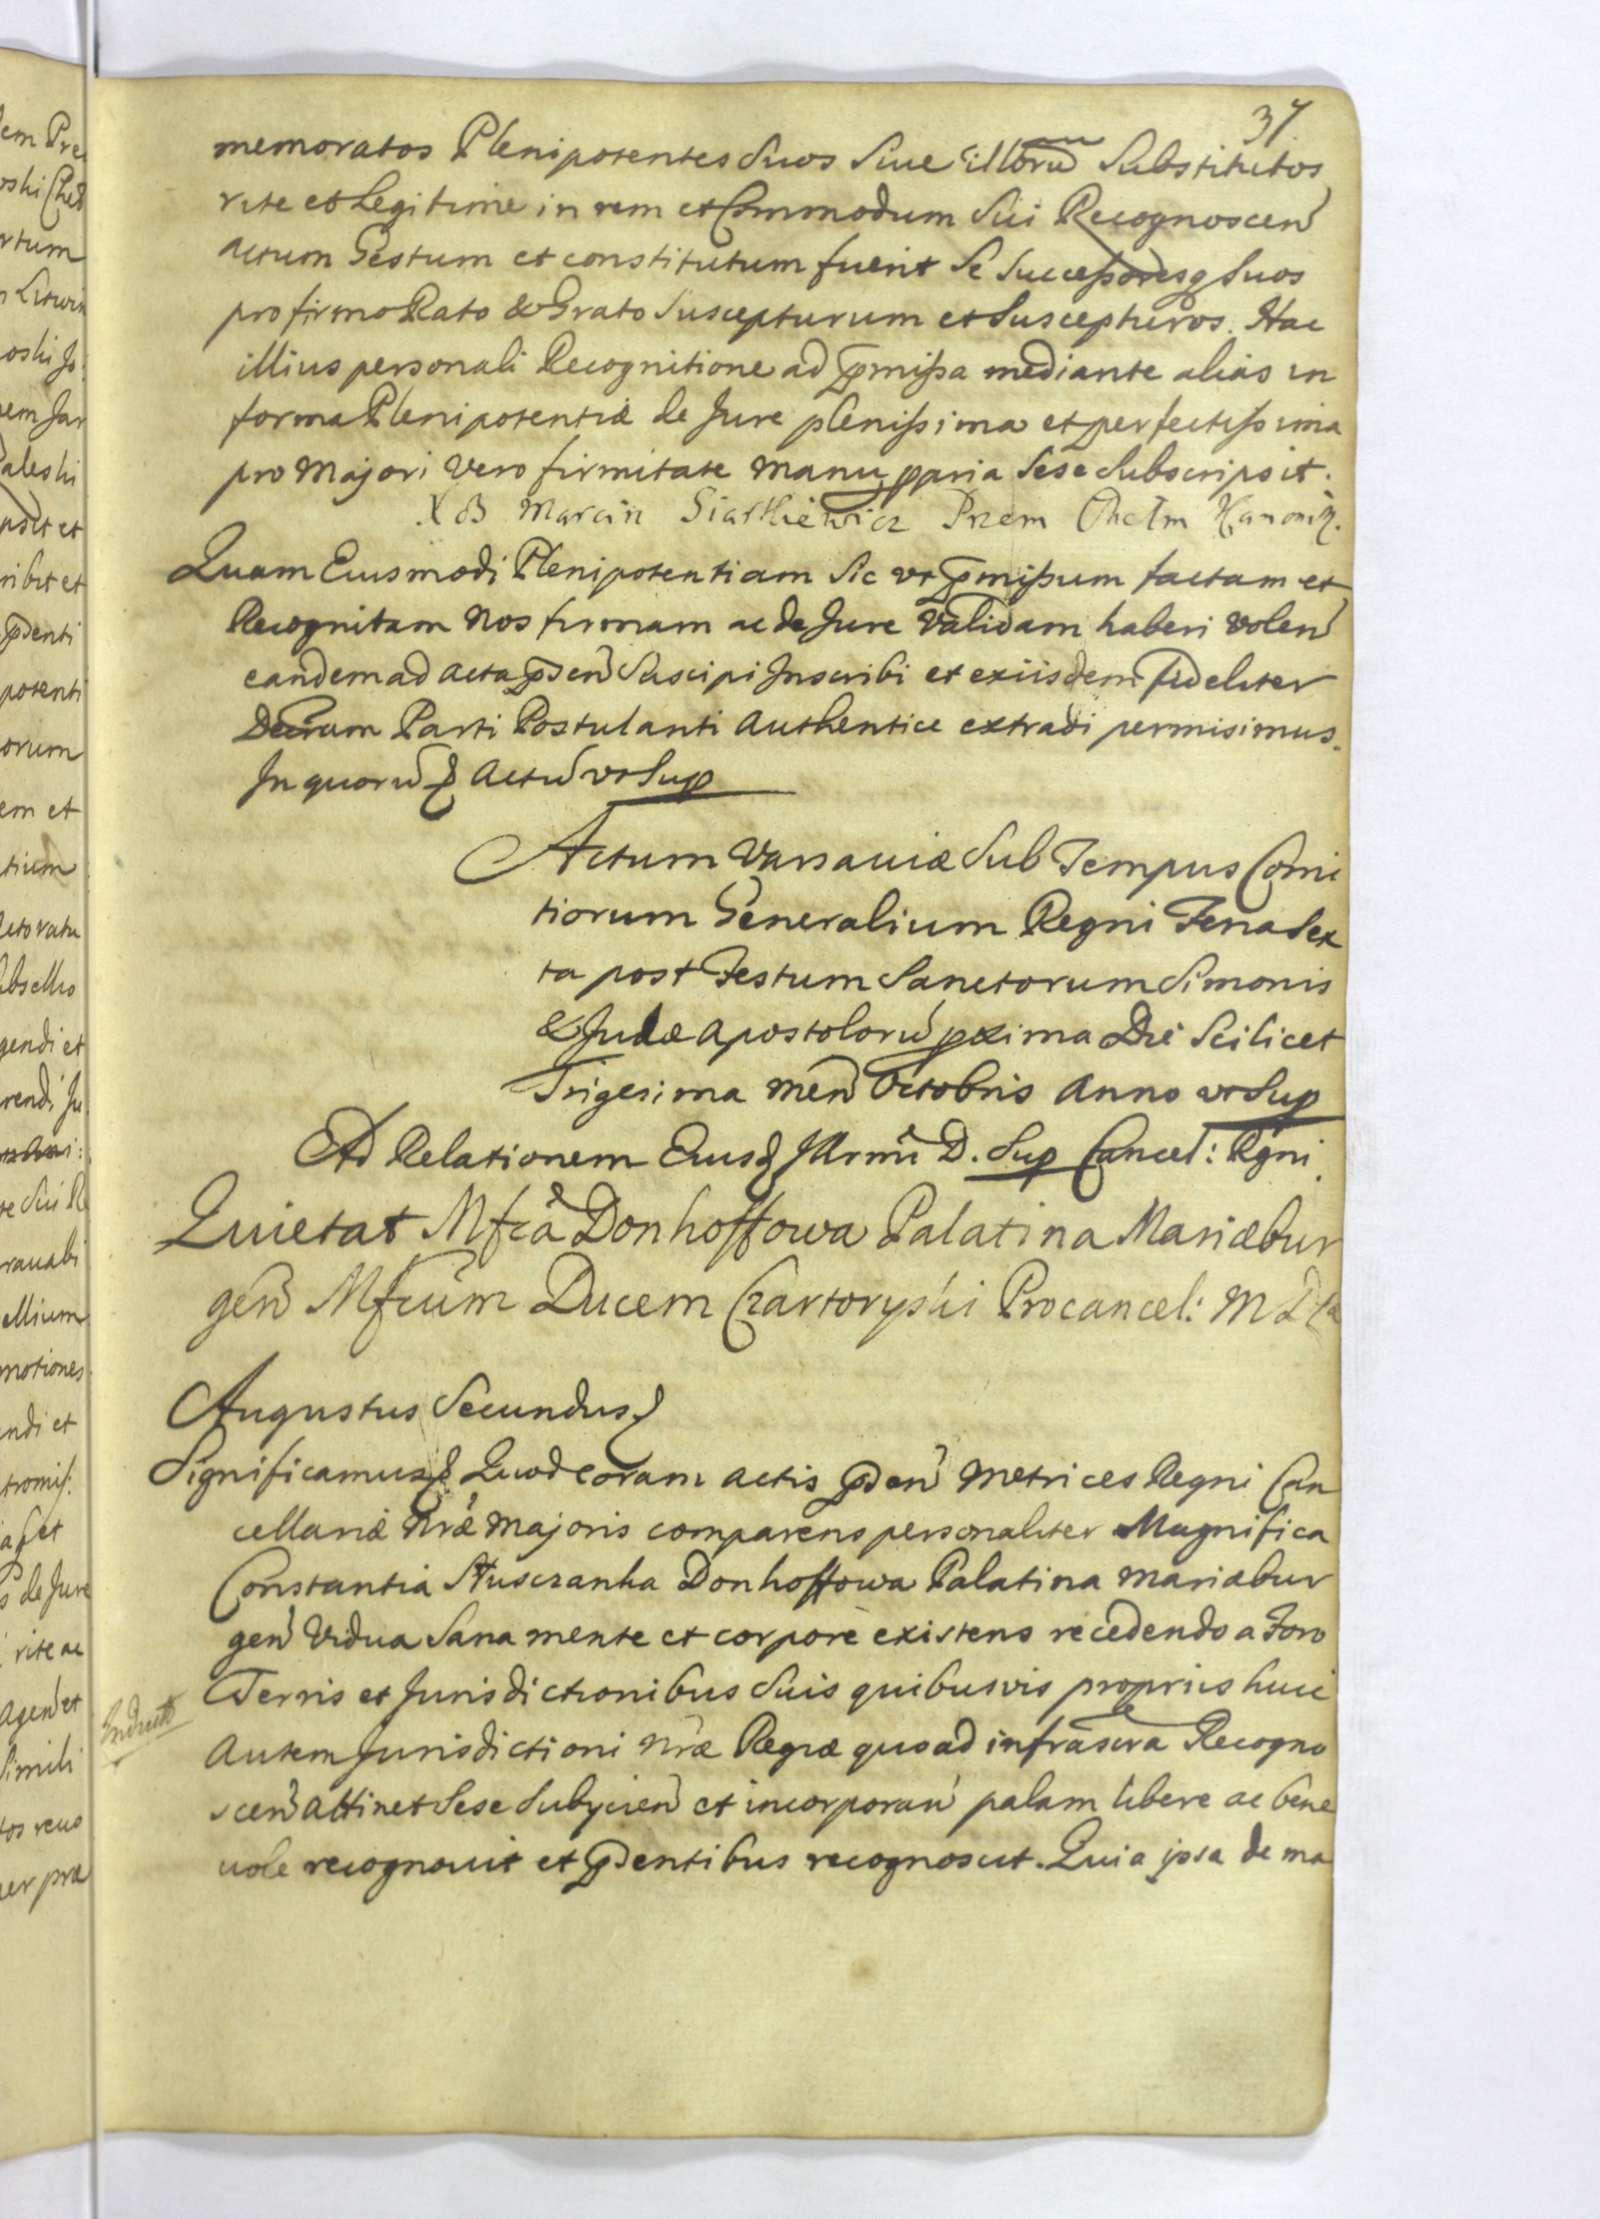 37
memoratos Plenipotentes Suos Siue illorũ Substitutos
rite et Legitime in rem et Commodum Sui Recognoscen̄
actum Gestum et constitutum fuerit Se Successoresq̃ Suos
pro firmo Rato & Grato Suscepturum et Suscepturos. Hac
illius personali Recognitione ad p̃missa mediante alias in
forma Plenipotentiæ de Jure plenissima et perfectissima
pro Majori Vero firmitate manu ppria Sese Subscripsit.
X B Marcin Siarkiewicz Przem Chełm Kanonik.
Quam Eiusmodi Plenipotentiam Sic vt p̃missum factam et
Recognitam Nos firmam ac de Jure Validam haberi volen̄
eandem ad acta p̃sen̄ Suscipi Inscribi et exiisdem fideliter
Parti Postulanti Authentice extradi permisimus.
In quorũ & Actũ vt Sup
Actum Varsaviæ Sub Tempus Comi
tiorum Generalium Regni Feria Sex
ta post Festum Sanctorum Simonis
& Judæ Apostolorũ pxima Die Scilicet
Trigesima men̄ Octobris Anno vt Sup
Ad Relationem Eiusd Illrmi D. Sup Cancel: Rgni.
Quietat Mfca Donhoffowa Palatina Mariæbur
gen̄ Mfcum Ducem Czartoryski Procancel: M D
Augustus Secundus &
Significamus & Quod coram actis p̃sen̄ Metrices Regni Can
cellariæ Nræ Majoris comparens personaliter Magnifica
Constantia Słuszanka Donhoffowa Palatina Mariæbur
gen̄ Vidua Sana mente et corpore existens recedendo a Foro
Terris et Jurisdictionibus Suis quibusvis propriis huic
Autem Jurisdictioni Nræ Regiæ quoad infrascra Recogno
scen̄ attinet Sese Subijcien̄ et incorporan̄ palam libere ac bene
uole recognouit et p̃sentibus recognoscit. Quia ipsa de ma